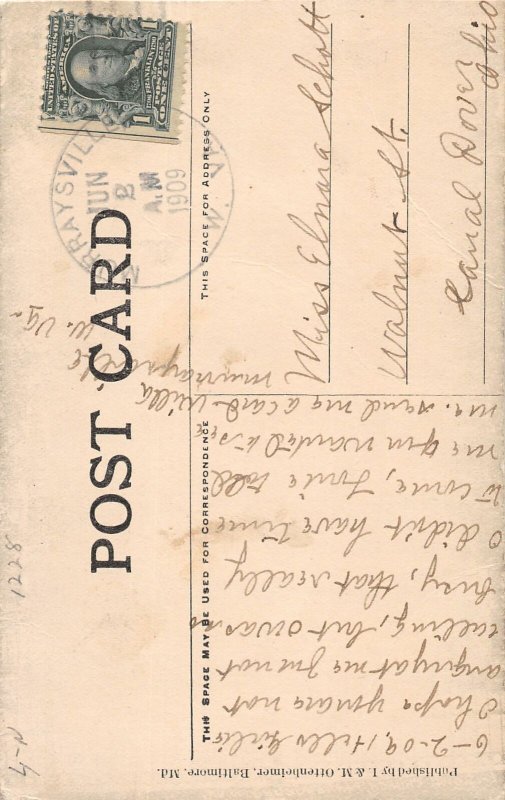 POST CARD
THIS SPACE MAY BE USED FOR CORRESPONDENCE
THIS SPACE FOR ADDRESS ONLY
UNITED STATES OF AMERICA
FRANKLIN
POSTAGE
1 ONE CENT 1
MURRAYSVILLE
JUN
2
A.M
1909
W. VA.
Miss Elnora Schott
Walnut St.
Canal Dover
Ohio
6-2-09, Hello Girlie
I hope you are not
angry at me for not
calling, but I was so
busy, that really
I didn't have time
to come, told
me you wanted to see
me. Send me a card. Willa
Murraysville
W. Va.
Published by I. & M. Ottenheimer, Baltimore, Md.
1228
4-N